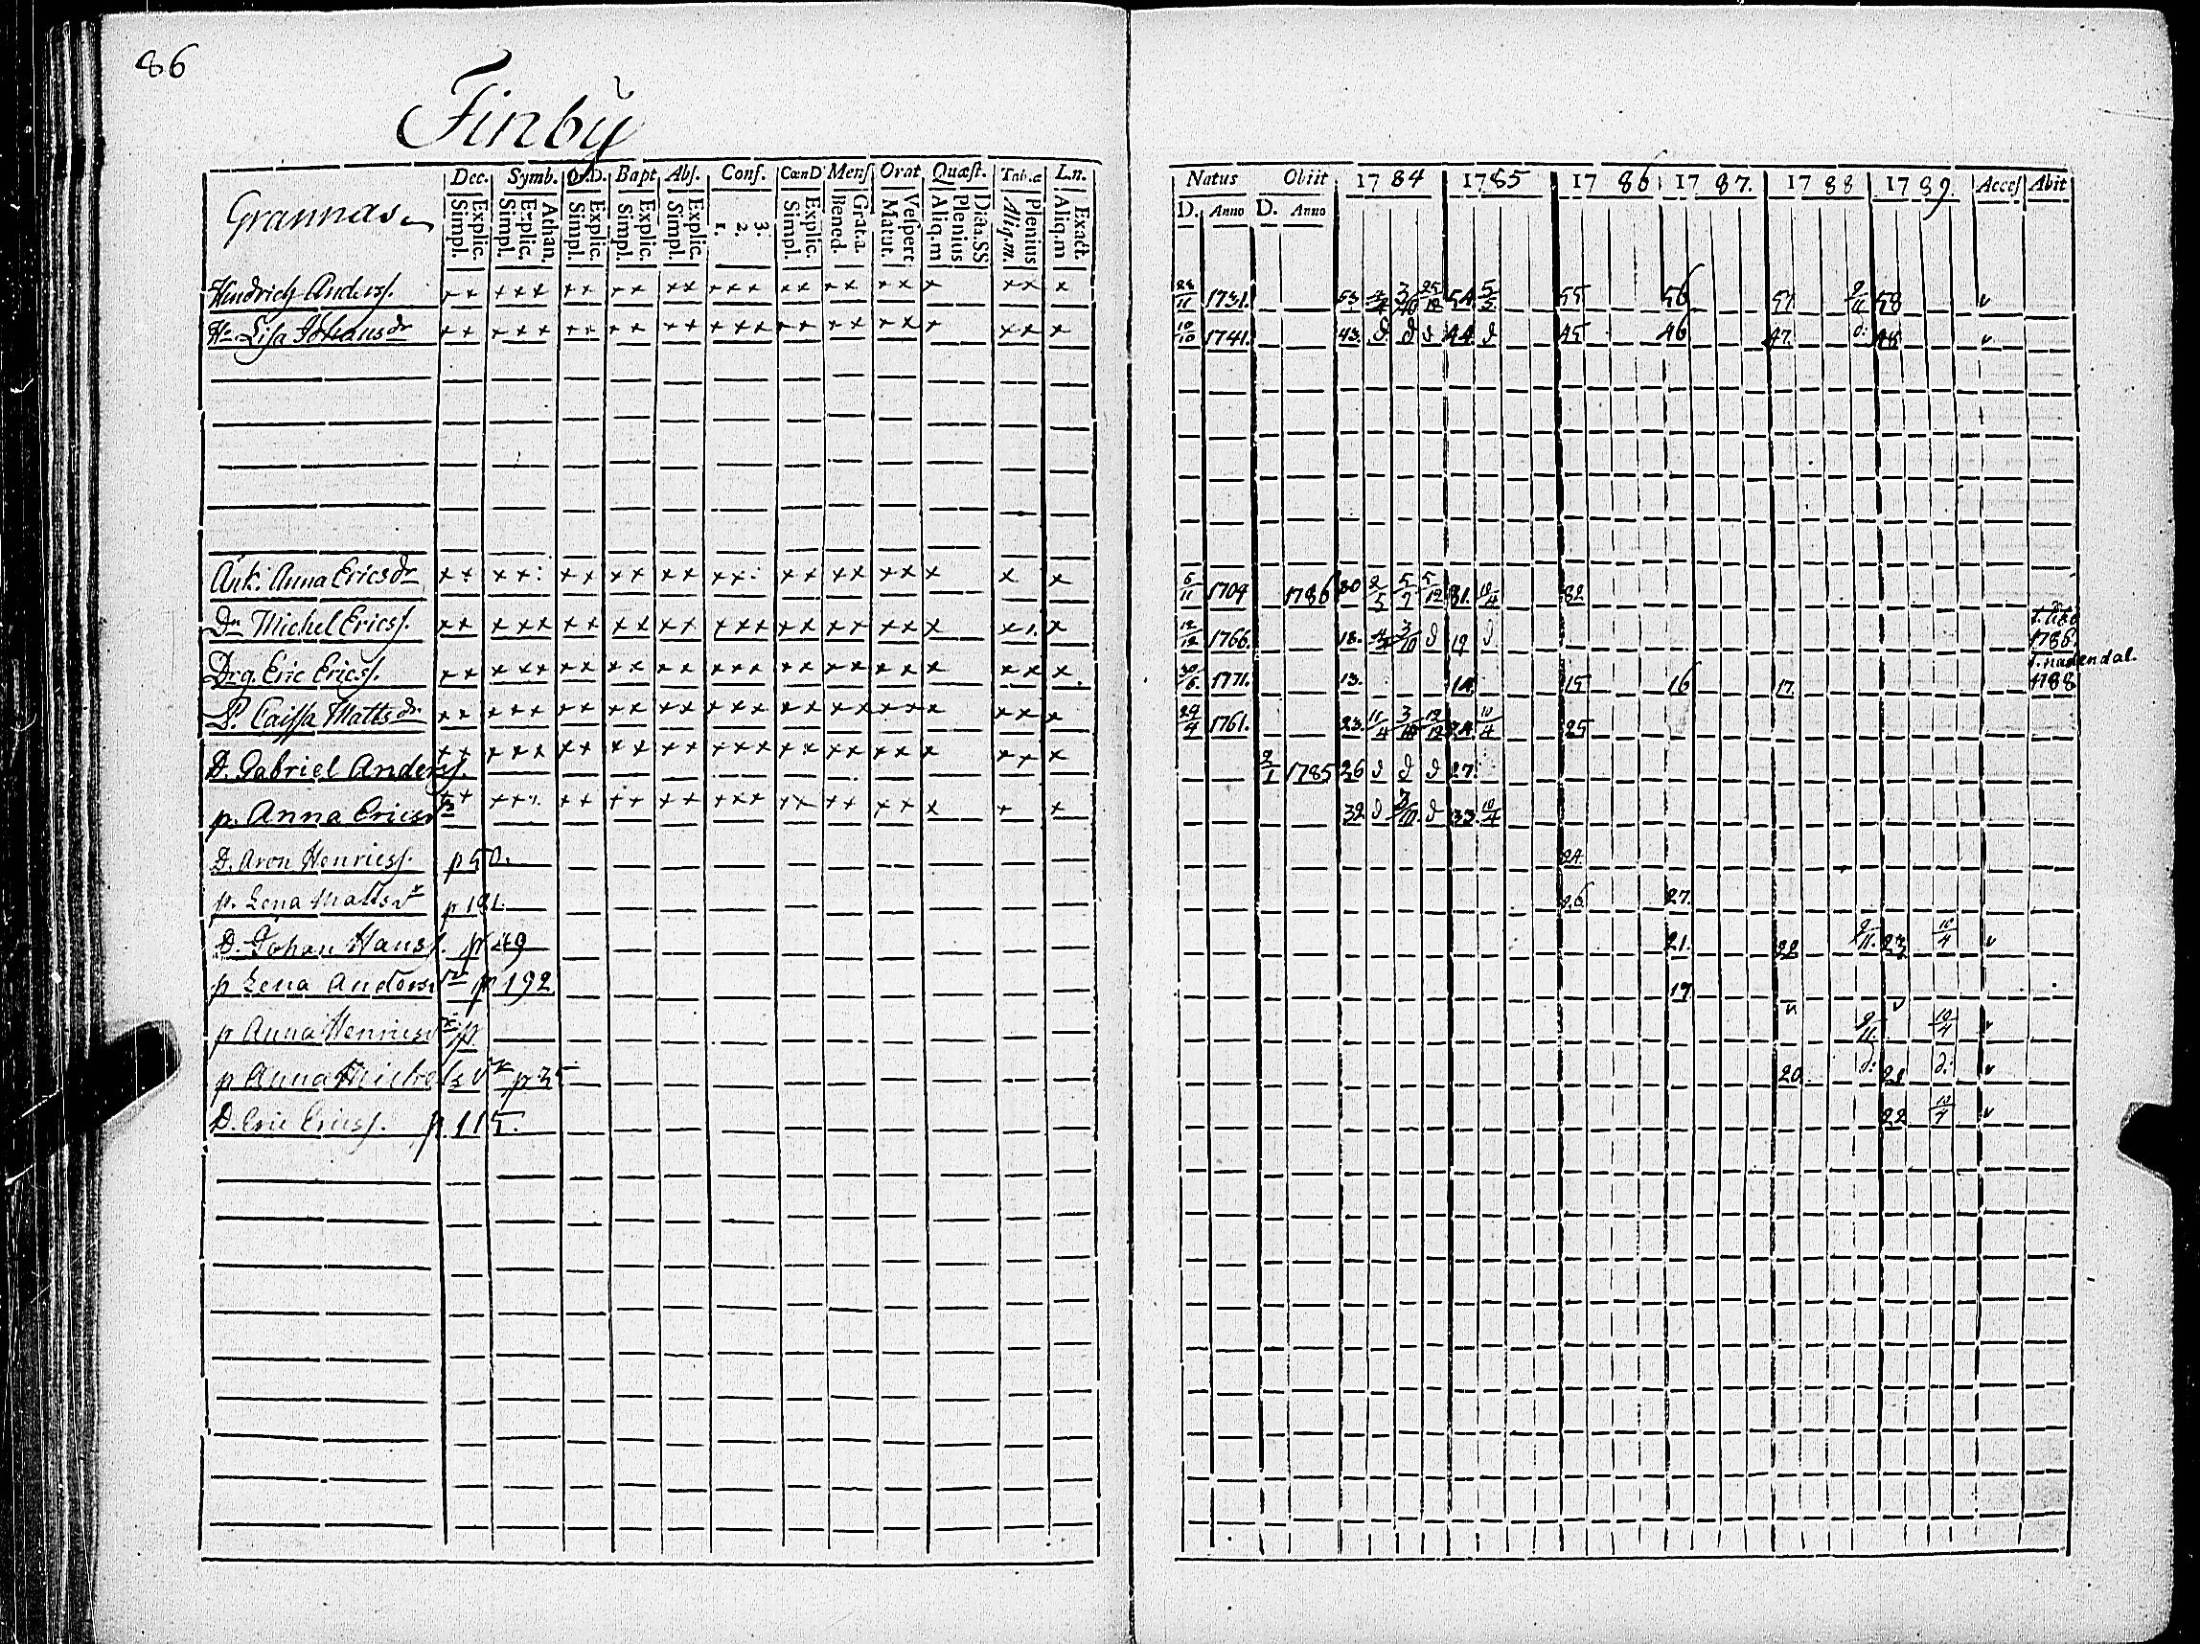 86
Finby
Dec. Symb. Or.D. Bapt Abs. Conf. CœnD Mens Orat Quæst. Tab.æ Ln.
Grannas
Simpl. Explic. Simpl. Explic. Athan. Simpl. Explic. Simpl. Explic. Simpl. Explic. 1. 2. 3. Simpl. Explic. Bened. Grat.a. Matut. Vespert. Aliq.m Plenius Dicta.SS Aliq.m. Plenius Aliq.m Exact.
Natus Obiit 1784 1785 1786 1787. 1788 1789. Acces Abit
D. Anno D. Anno
Hindrich Anders. ×× ××× ×× ×× ×× ××× ×× ×× ×× × ×× × 1731. 53. 3/10 25/12 54. 5/5 55 56 57 9/11 58 v
Hu Lisa Johans dr ×× ××× ×× ×× ×× ××× ×× ×× ×× × ×× × 10/10 1741. 43. d d d 44. d 45 46 47. d: 48 v
Änk. Anna Erics dr ×× ××: ×× ×× ×× ××: ×× ×× ×× × × × 6/11 1704 1786 80 2/5 5/7 5/12 81. 10/4 82
Dr Michel Erics. ×× ××× ×× ×× ×× ××× ×× ×× ×× × ×1. × 12/12 1766. 18. 3/10 d 19 d 1786
Drg. Eric Erics. ×× ××× ×× ×× ×× ××× ×× ×× ×× × ×× × 1771. 13. 14. 15 16 17. t. nadendal. 1788
P. Caissa Matts dr ×× ××× ×× ×× ×× ××× ×× ×× ×× × ×× × 29/4 1761. 23. 11/4 3/10 12/12 24. 10/4 25
D. Gabriel Anders. ×× ××× ×× ×× ×× ××× ×× ×× ×× × ×× × 2/1 1785 26 d d d 27.
p. Anna Ericsdr ×× ××× ×× ×× ×× ××× ×× ×× ×× × × × 32 d 3/10 d 33. 10/4
D. Aron Henrics. p 50. 24.
p. Lena Mattsdr p 191. 26. 27.
D. Johan Hans. p 49 21. 22 9/11. 23 10/4 v
p Lena Andersdr p 192 19
p Anna Henricsdr p. v 9/11. v 10/4 v
p Anna Michelsdr p 35 20. d: 21 d: v
D. Eric Erics. p. 115. 22 10/4 v